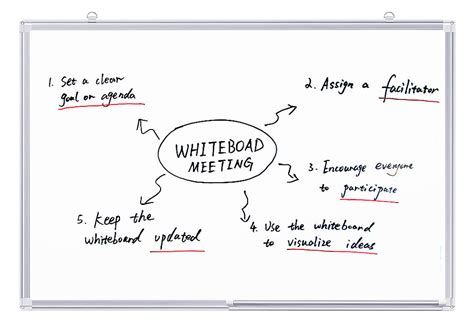 1. Set a clear
goal or agenda
2. Assign a facilitator
WHITEBOAD
MEETING
3. Encourage everyone
to participate
4. Use the whiteboard
to visualize ideas
5. Keep the
whiteboard updated